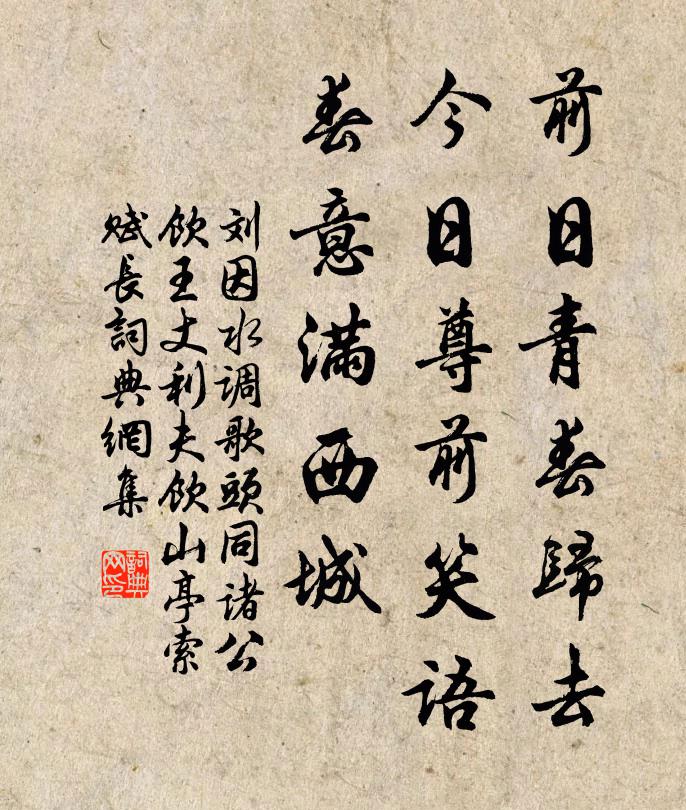 前日青春歸去
今日尊前笑语
春意滿西城
刘因水调歌頭同诸公
飲王丈利夫飲山亭索
赋長詞典網集
詞典網印